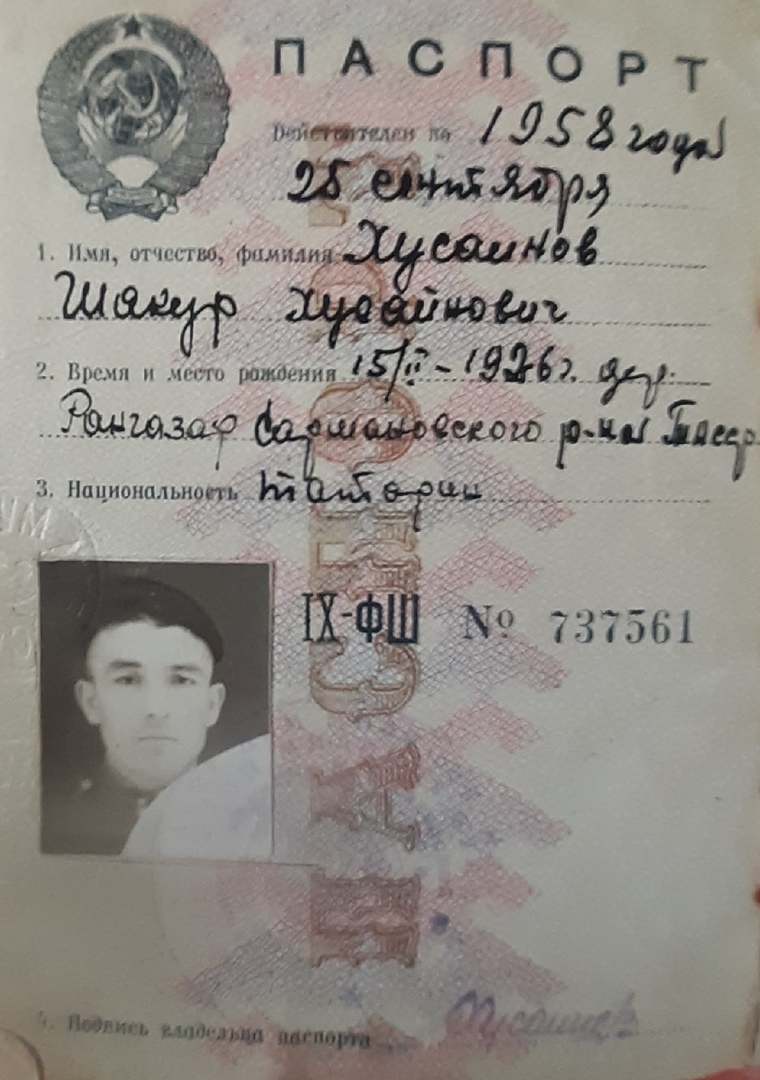 ПАСПОРТ
Действителен по 1958 года
25 сентября
1. Имя, отчество, фамилия Хусаинов
Шакур Хусайнович
2. Время и место рождения 15/II-1926 г. дер.
Рангазар Сармановского р-на Тасср
3. Национальность татарин
IX-ФШ № 737561
ПАСПОРТ
4. Подпись владельца паспорта